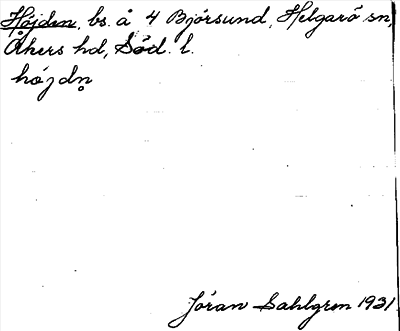 Höjden, bs. å 4 Björsund, Helgarö sn,
Åkers hd, Söd. l.
höjdn̥
Jöran Sahlgren 1931.